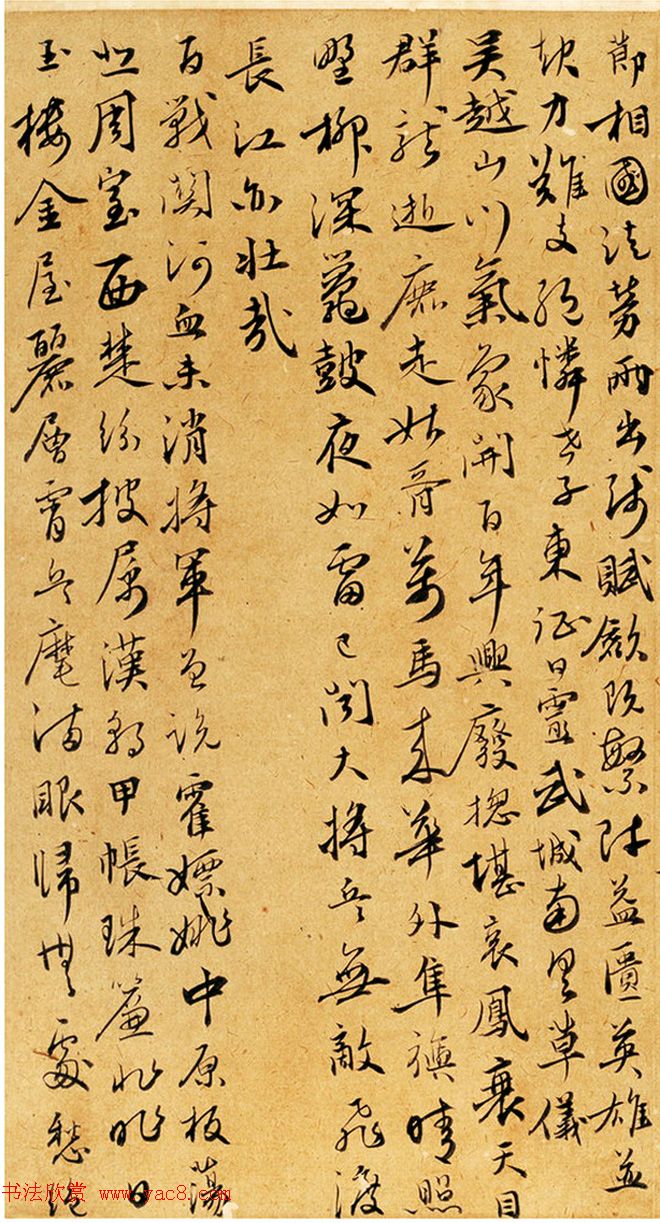 節相國法勞兩出師賦斂既繁財益匱英雄並
起力難支絕憐子東征日靈武城南草儀
吳越山川氣象開百年興廢揔堪哀鳳衰天目
群龍逝鹿走姑胥萬馬來華外隼旟晴照
野柳深鼉鼓夜如雷已聞大將兵無敵飛渡
長江亦壯哉
百戰關河血未消將軍曾說霍嫖姚中原板蕩
悲周室西楚紛披屬漢朝甲帳珠簾非昨日
玉樓金屋麗層霄兵塵滿眼歸無處愁絕
书法欣赏 www.yac8.com